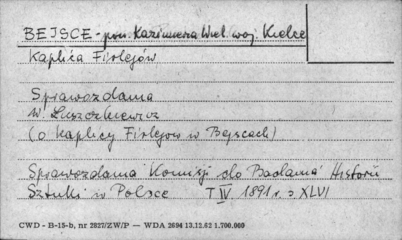 BEJSCE - pow. Kazimierza Wiel. woj. Kielce
Kaplica Firlejów
Sprawozdania
W. Łuszczkiewicz
(o Kaplicy Firlejów w Bejscach)
Sprawozdania Komisji do Badania Historii
Sztuki w Polsce T IV 1891 r. s. XLVI
CWD - B-15-b, nr 2827/ZW/P — WDA 2694 13.12.62 1.700.000